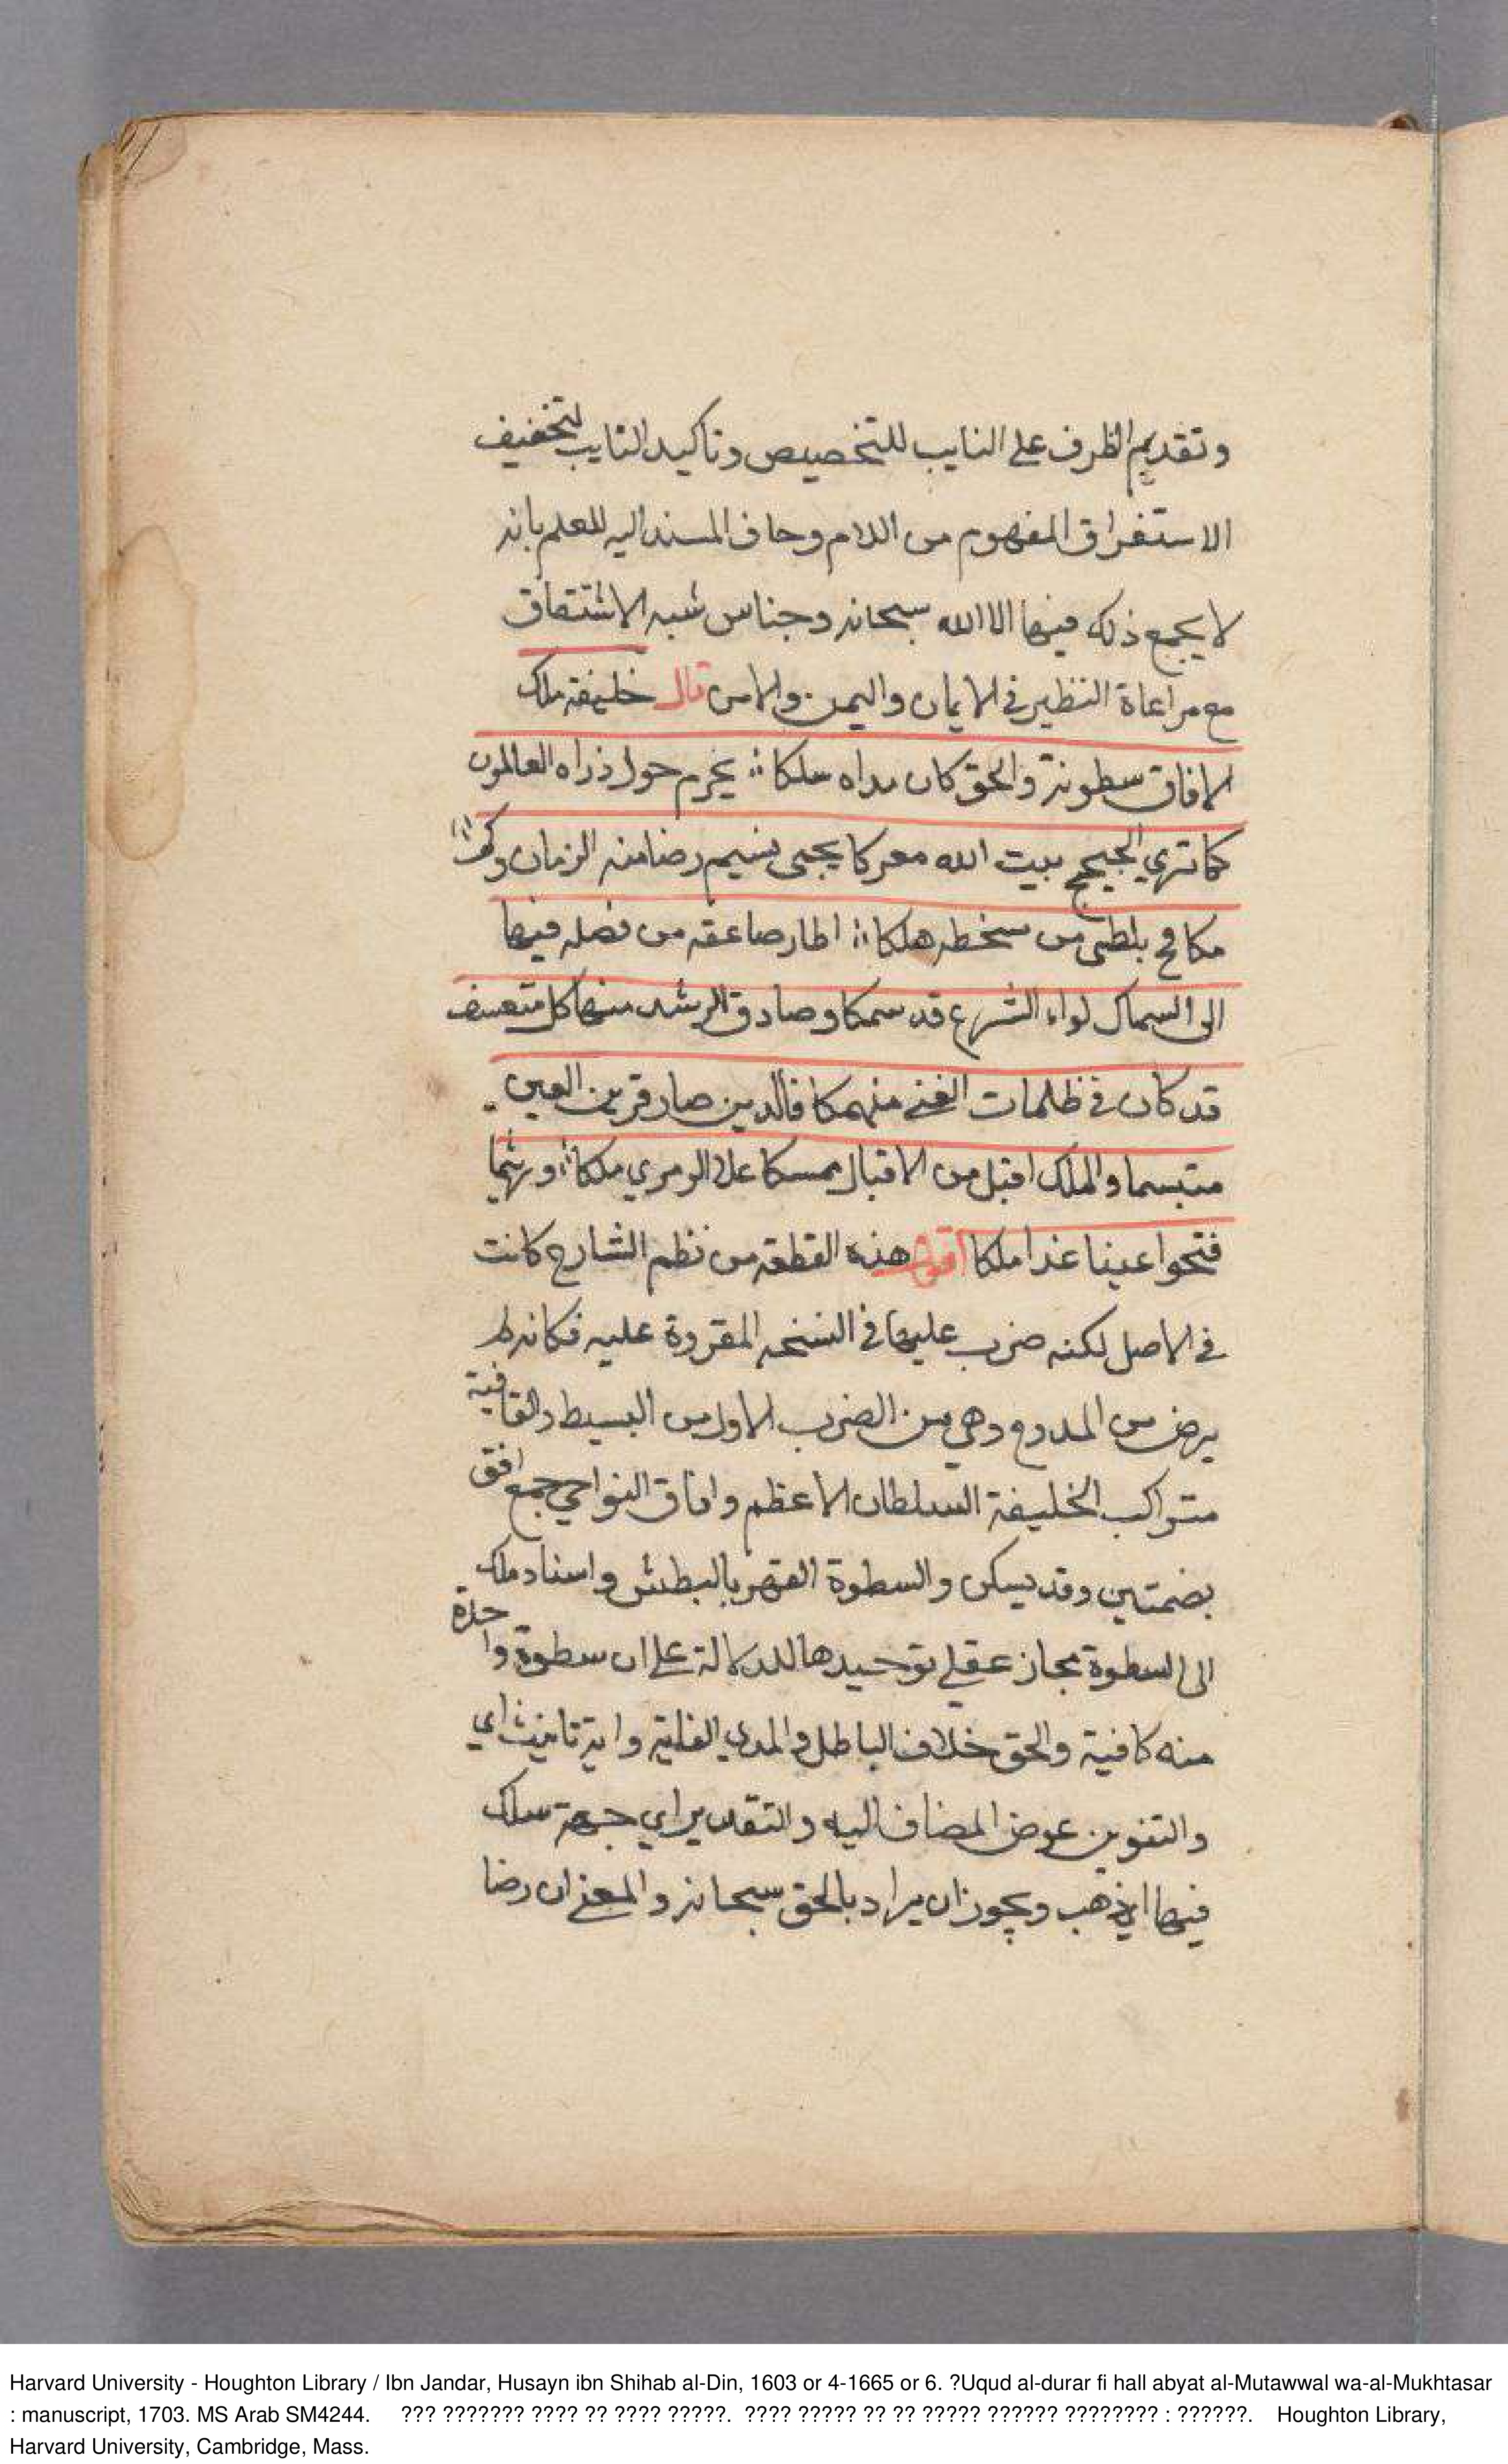 وتقديم الظرف على النايب للتخصيص وتاكيد النايب لتخفيف
الاستغراق المفهوم من اللام وحاف المسند اليه للعلم بانه
لا يجمع ذلك فيها الا الله سبحانه وجناس شبه الاشتقاق
مع مراعاة النظير في الايمان واليمن والامن قال خليفة ملك
الافاق سطوته والحق كان مداه سلكا يحرم حول ذراه العالمون
كما تري الحجيج ببيت الله معركا يحيى نسيم رضا منه الزمان وكم
مكافح بلظى من سخطه هلكا اطار صاعقه من نصله فيها
الى السماك لواء الشرع قد سمكا وصادق الرشد منها كل متعسف
قد كان في ظلمات الغي منهمكا فالدين صار قرين العين
متبسما والملك اقبل من الاقبال ممسكا علا الورى ملكا وريثما
فتحوا عينا غدا ملكا اقول هذه القطعة من نظم الشارح كانت
في الاصل لكنه ضرب عليها في النسخه المقروة عليه فكانه لم
يرض من المدوح وهي من الضرب الاول من البسيط والقافية
متراكب الخليفة السلطان الاعظم وافاق النواحي جمع افق
بضمتين وقد يسكن والسطوة القهر بالبطش واسناد ملك
الى السطوة مجاز عقلي توحيدها للدلالة على ان سطوة واحدة
منه كافية والحق خلاف الباطل والمدي الغاية واية تانيث اي
والتنوين عوض المضاف اليه والتقدير اي جهة سلك
فيها اي ذهب ويجوز ان يراد بالحق سبحانه والمعنى ان رضا
Harvard University - Houghton Library / Ibn Jandar, Husayn ibn Shihab al-Din, 1603 or 4-1665 or 6. ?Uqud al-durar fi hall abyat al-Mutawwal wa-al-Mukhtasar
: manuscript, 1703. MS Arab SM4244. ??? ??????? ???? ?? ???? ?????. ???? ????? ?? ?? ????? ?????? ???????? : ??????. Houghton Library,
Harvard University, Cambridge, Mass.